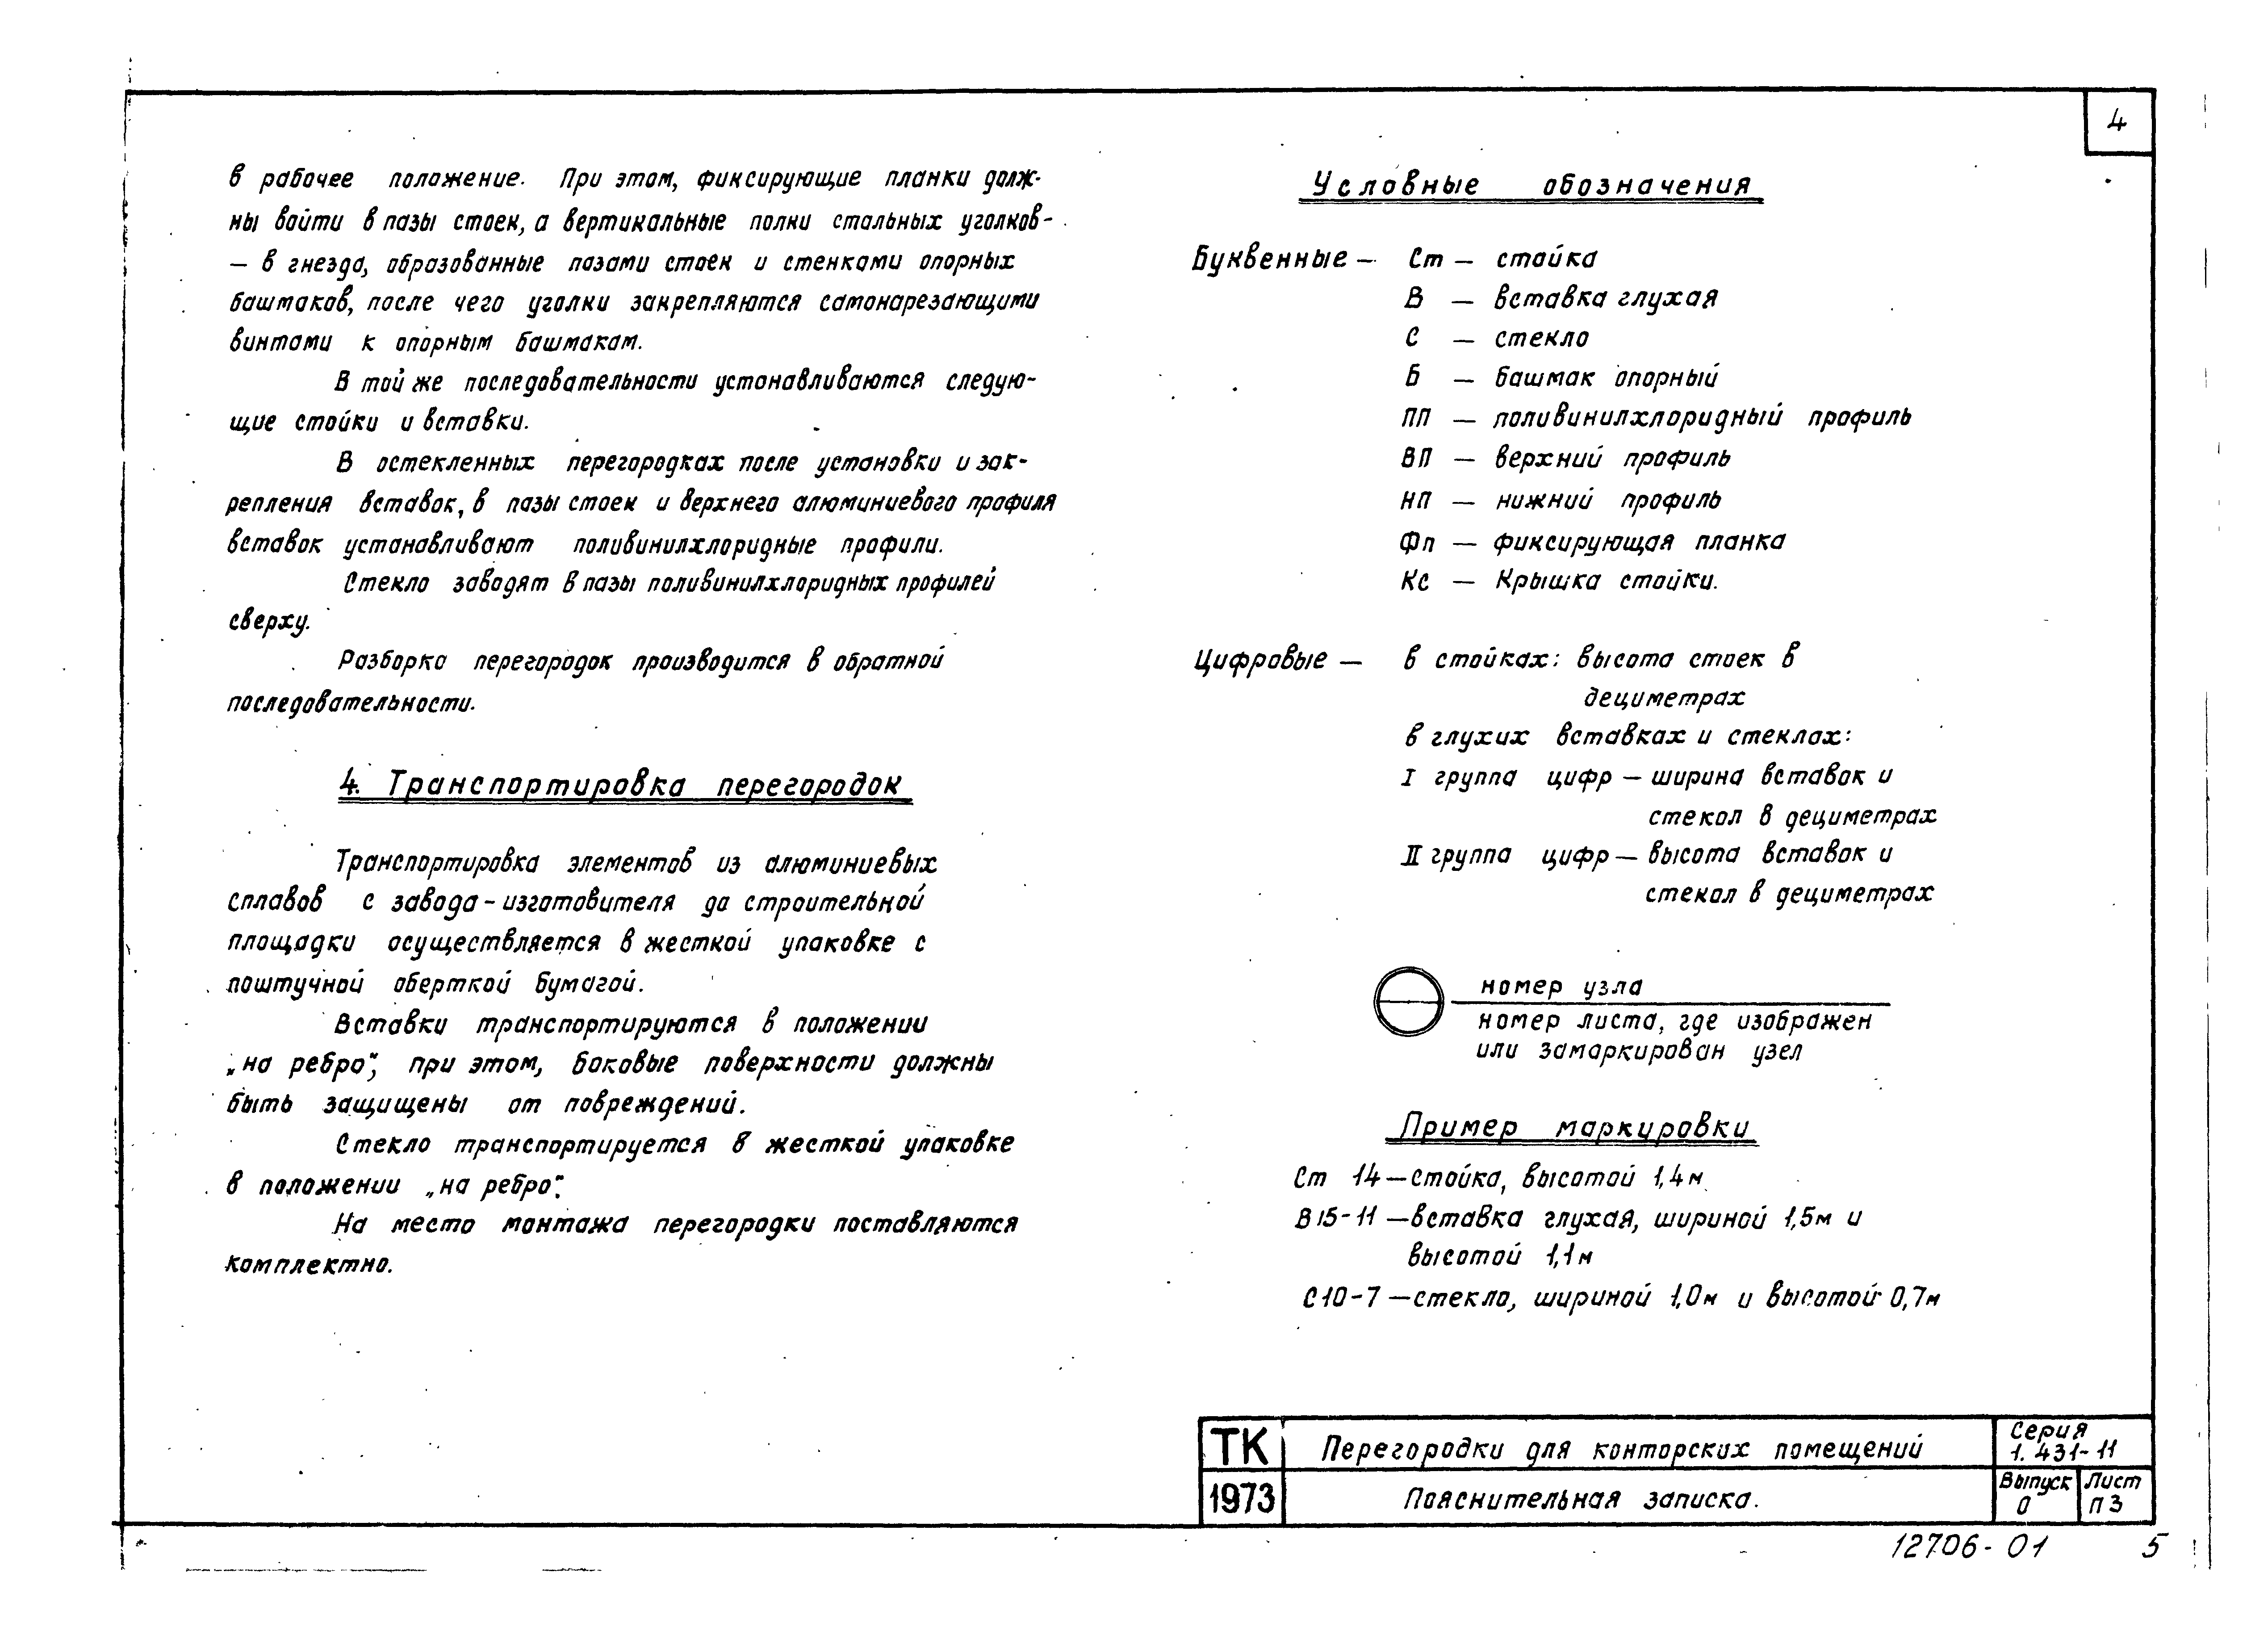 4
в рабочее положение. При этом, фиксирующие планки долж-
ны войти в пазы стоек, а вертикальные полки стальных уголков-
— в гнезда, образованные пазами стоек и стенками опорных
башмаков, после чего уголки закрепляются самонарезающими
винтами к опорным башмакам.
В той же последовательности устанавливаются следую-
щие стойки и вставки.
В остекленных перегородках после установки и зак-
репления вставок, в пазы стоек и верхнего алюминиевого профиля
вставок устанавливают поливинилхлоридные профили.
Стекло заводят в пазы поливинилхлоридных профилей
сверху.
Разборка перегородок производится в обратной
последовательности.
4. Транспортировка перегородок
Транспортировка элементов из алюминиевых
сплавов с завода-изготовителя до строительной
площадки осуществляется в жесткой упаковке с
поштучной оберткой бумагой.
Вставки транспортируются в положении
„на ребро“, при этом, боковые поверхности должны
быть защищены от повреждений.
Стекло транспортируется в жесткой упаковке
в положении „на ребро“.
На место монтажа перегородки поставляются
комплектно.
Условные обозначения
Буквенные — Ст — стойка
В — вставка глухая
С — стекло
Б — башмак опорный
ПП — поливинилхлоридный профиль
ВП — верхний профиль
НП — нижний профиль
Фп — фиксирующая планка
Кс — Крышка стойки.
Цифровые — в стойках: высота стоек в
дециметрах
в глухих вставках и стеклах:
I группа цифр — ширина вставок и
стекол в дециметрах
II группа цифр — высота вставок и
стекол в дециметрах
номер узла
номер листа, где изображен
или замаркирован узел
Пример маркировки
Ст 14 — стойка, высотой 1,4м
В15-11 — вставка глухая, шириной 1,5м и
высотой 1,1м
С10-7 — стекло, шириной 1,0м и высотой 0,7м
ТК Перегородки для конторских помещений Серия
1.431-11
1973 Пояснительная записка. Выпуск Лист
0 П3
12706-01 5